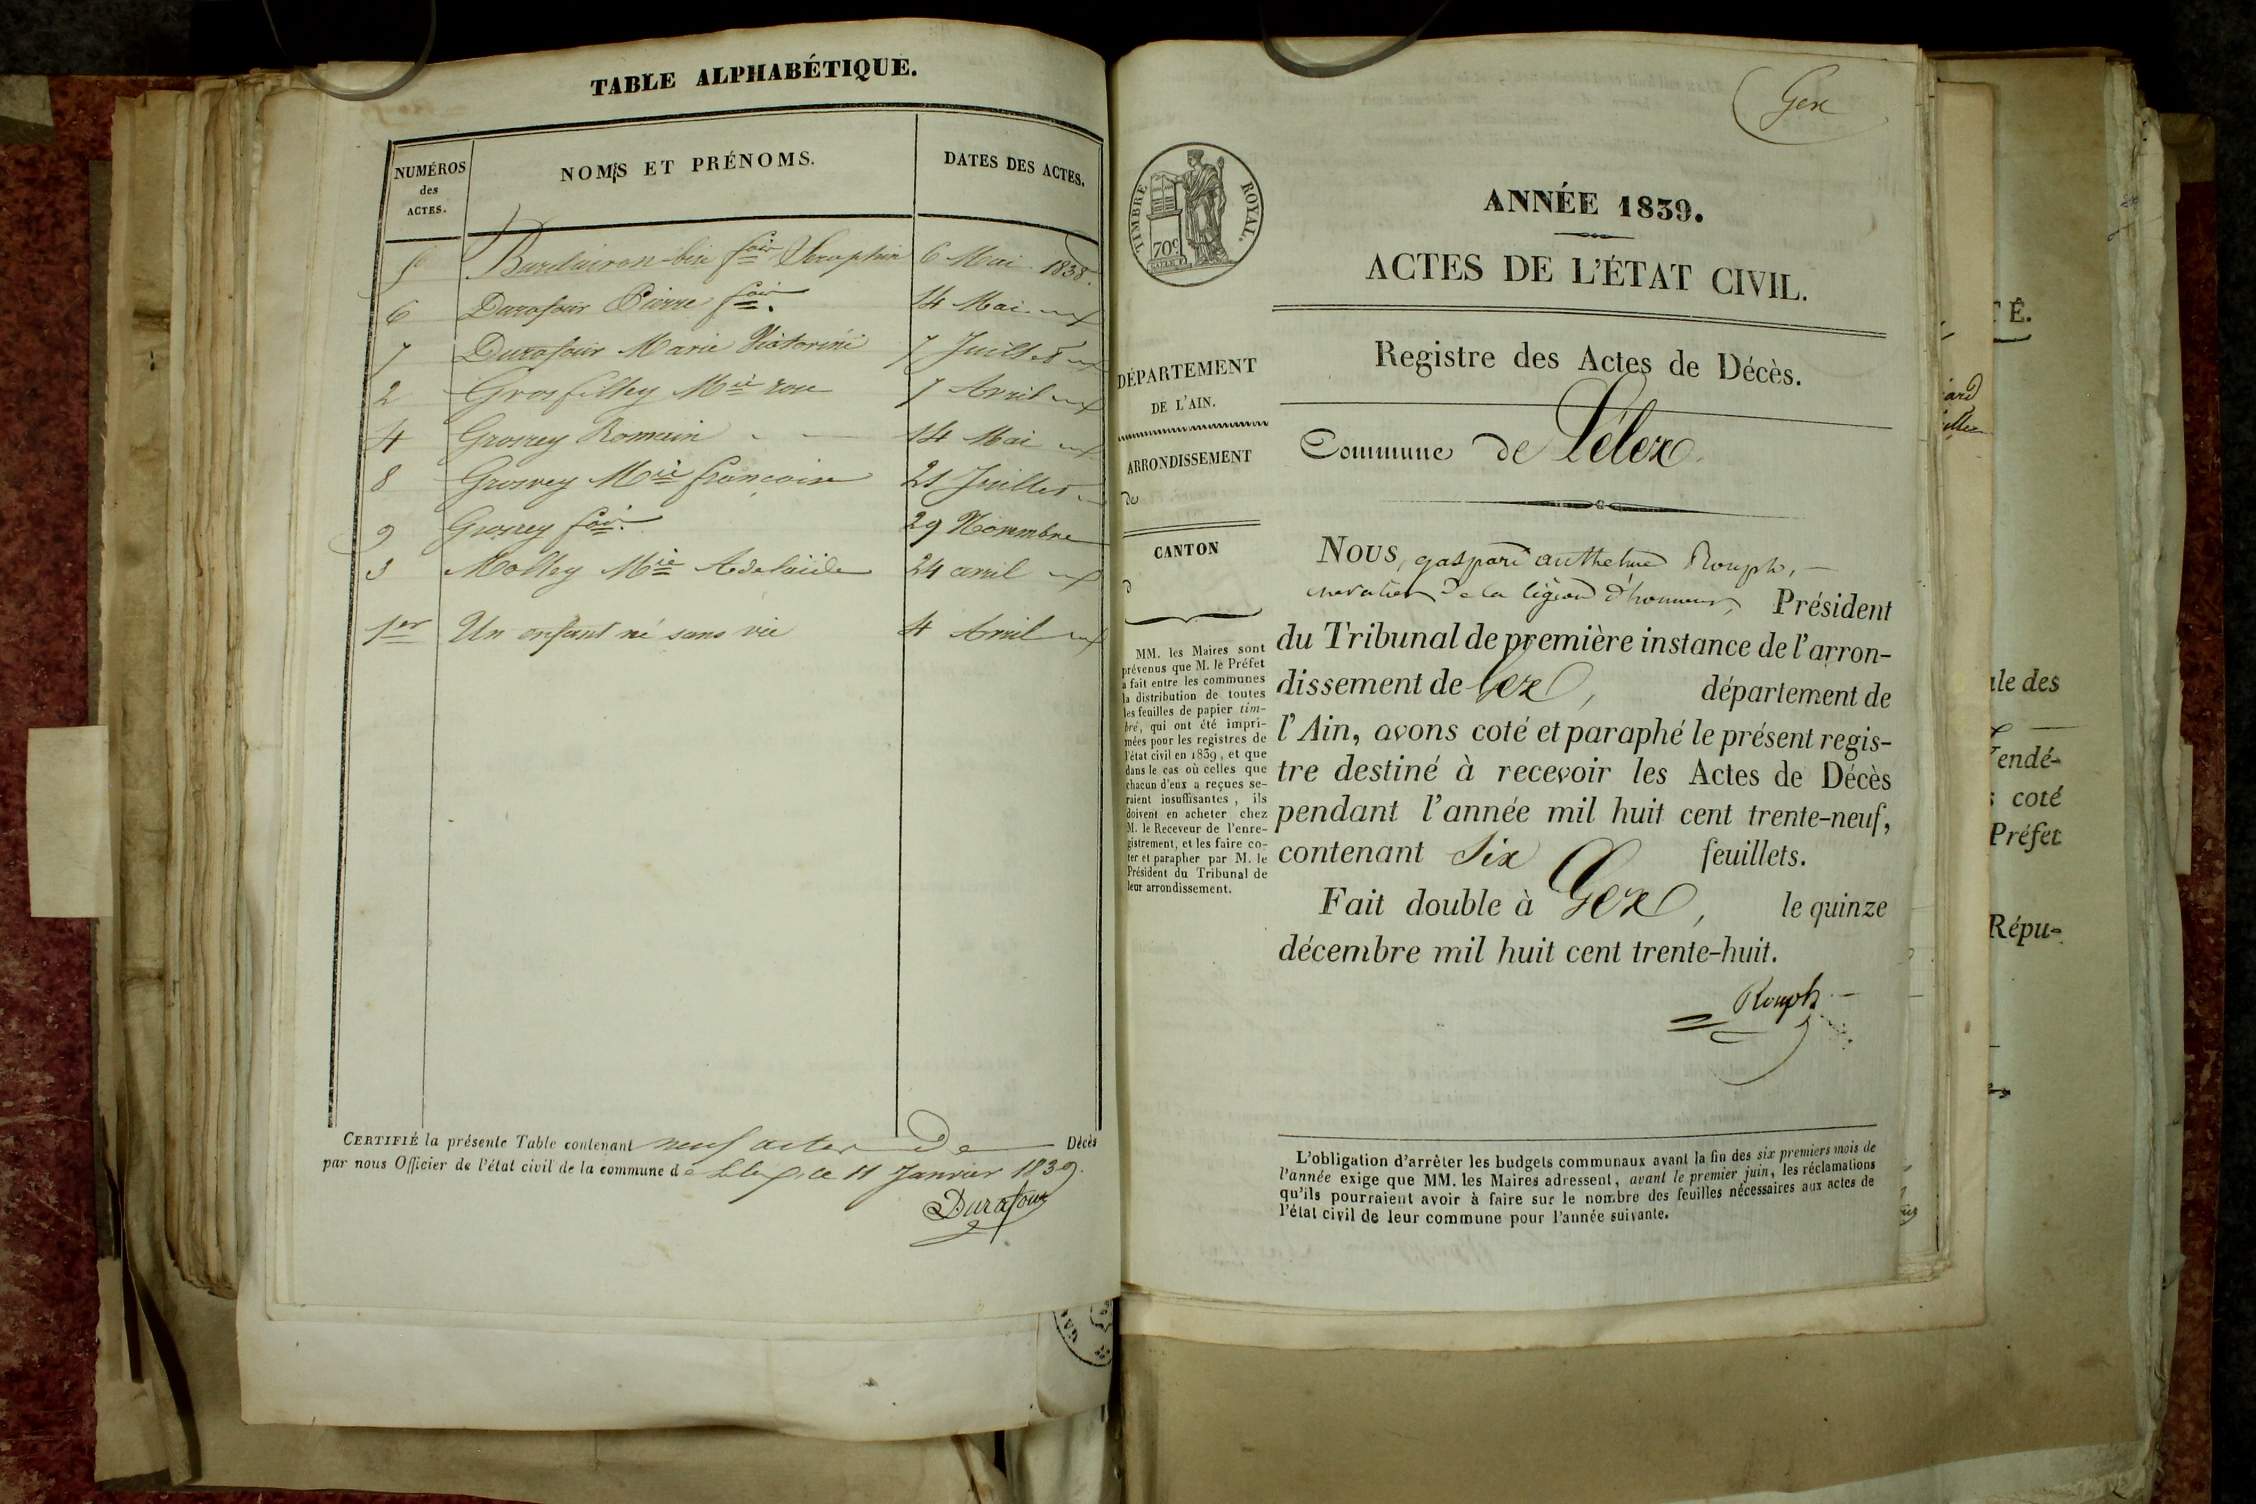 TABLE ALPHABÉTIQUE.
NUMÉROS des ACTES.
NOMS ET PRÉNOMS.
DATES DES ACTES.
6 Mai 1838.
6 Durafour Pierre fois. 14 Mai
7 Durafour Marie Victorine 7 Juillet
2 Grosfilley Mie rose 7 Avril
4 Grosrey Romain 14 Mai
8 Grosrey Mie francoise 21 Juillet
9 Grosrey fois. 29 Novembre
3 Molley Mie Adelaïde 24 avril
1er Un enfant né sans vie 4 Avril
CERTIFIÉ la présente Table contenant neuf actes de Décès
par nous Officier de l'état civil de la commune de Lélex, le 11 Janvier 1839.
Durafour
Gex
TIMBRE ROYAL.
70c
ANNÉE 1839.
ACTES DE L'ÉTAT CIVIL.
Registre des Actes de Décès.
Commune de Lélex
DÉPARTEMENT
DE L'AIN.
ARRONDISSEMENT
de
CANTON
d
MM. les Maires sont
prévenus que M. le Préfet
a fait entre les communes
la distribution de toutes
les feuilles de papier tim-
bré, qui ont été impri-
mées pour les registres de
l'état civil en 1839, et que
dans le cas où celles que
chacun d'eux a reçues se-
raient insuffisantes, ils
doivent en acheter chez
M. le Receveur de l'enre-
gistrement, et les faire co-
ter et parapher par M. le
Président du Tribunal de
leur arrondissement.
NOUS, gaspard anthelme Rouph,
chevalier de la légion d'honneur, Président
du Tribunal de première instance de l'arron-
dissement de Gex, département de
l'Ain, avons coté et paraphé le présent regis-
tre destiné à recevoir les Actes de Décès
pendant l'année mil huit cent trente-neuf,
contenant Six feuillets.
Fait double à Gex, le quinze
décembre mil huit cent trente-huit.
Rouph
L'obligation d'arrêter les budgets communaux avant la fin des six premiers mois de
l'année exige que MM. les Maires adressent, avant le premier juin, les réclamations
qu'ils pourraient avoir à faire sur le nombre des feuilles nécessaires aux actes de
l'état civil de leur commune pour l'année suivante.
TÉ.
ale des
endé-
coté
Préfet
Répu-